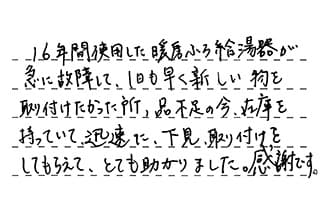 16年間使用した暖房ふろ給湯器が
急に故障して、1日も早く新しい物を
取り付けたかった所、品不足の今、在庫を
持っていて、迅速に、下見、取り付けを
してもらえて、とても助かりました。感謝です。